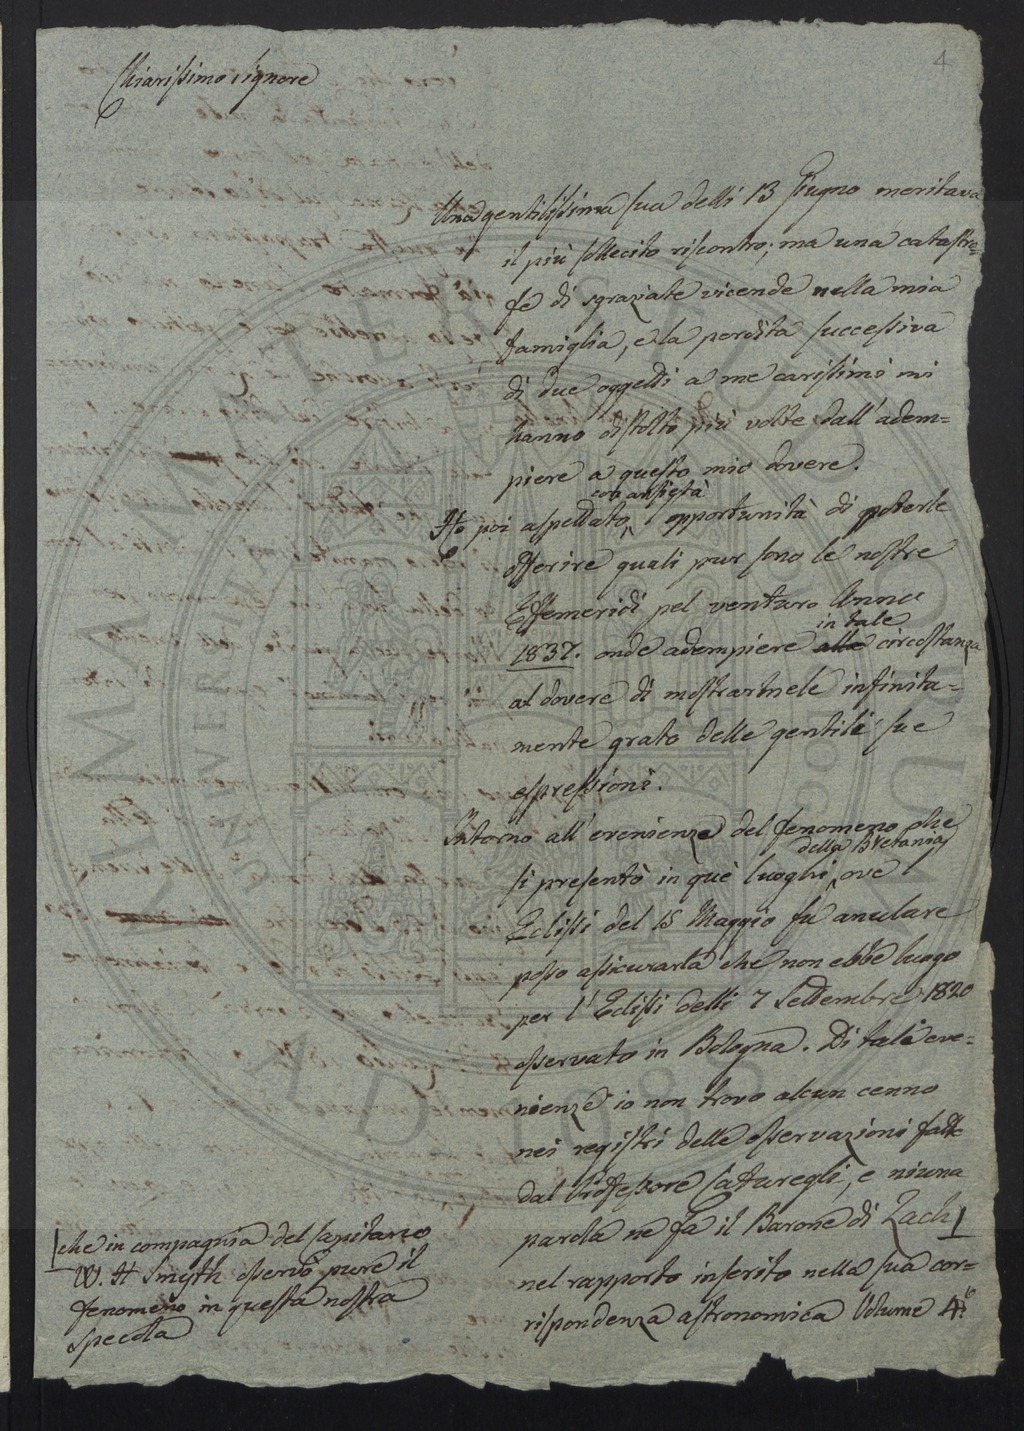 4
Chiarissimo signore
Una gentilissima sua delli 13 Giugno meritava
il più sollecito riscontro; ma una catastro=
fe di sgraziate vicende nella mia
famiglia, e la perdita successiva
di due oggetti a me carissimi mi
hanno distolto più volte dall'adem=
piere a questo mio dovere.
con ansietà
Ho poi aspettato, opportunità di poterle
offerire quali pur sono le nostre
Effemeridi pel venturo Anno
in tale
1837. onde adempiere alla circostanza
al dovere di mostrarmele infinita=
mente grato delle gentili sue
espressioni.
Intorno all'evenienza del fenomeno che
della Bretania
si presentò in què luoghi ove l
Eclissi del 15 Maggio fù anulare
posso assicurarla che non ebbe luogo
per l'Eclissi delli 7 Settembre 1820
osservato in Bologna. Di tale eve=
nienza io non trovo alcun cenno
nei registri delle osservazioni fatte
dal Professore Caturegli, e niuna
parola ne fa il Barone di Zach
nel rapporto inserito nella sua cor=
rispondenza astronomica Volume 4º
che in compagnia del Capitano
W. H Smyth osservò pure il
fenomeno in questa nostra
specola
ALMA MATER STUDIORUM
A.D. 1088